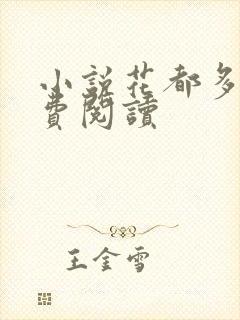 小説花都多
費閱讀
王金雪